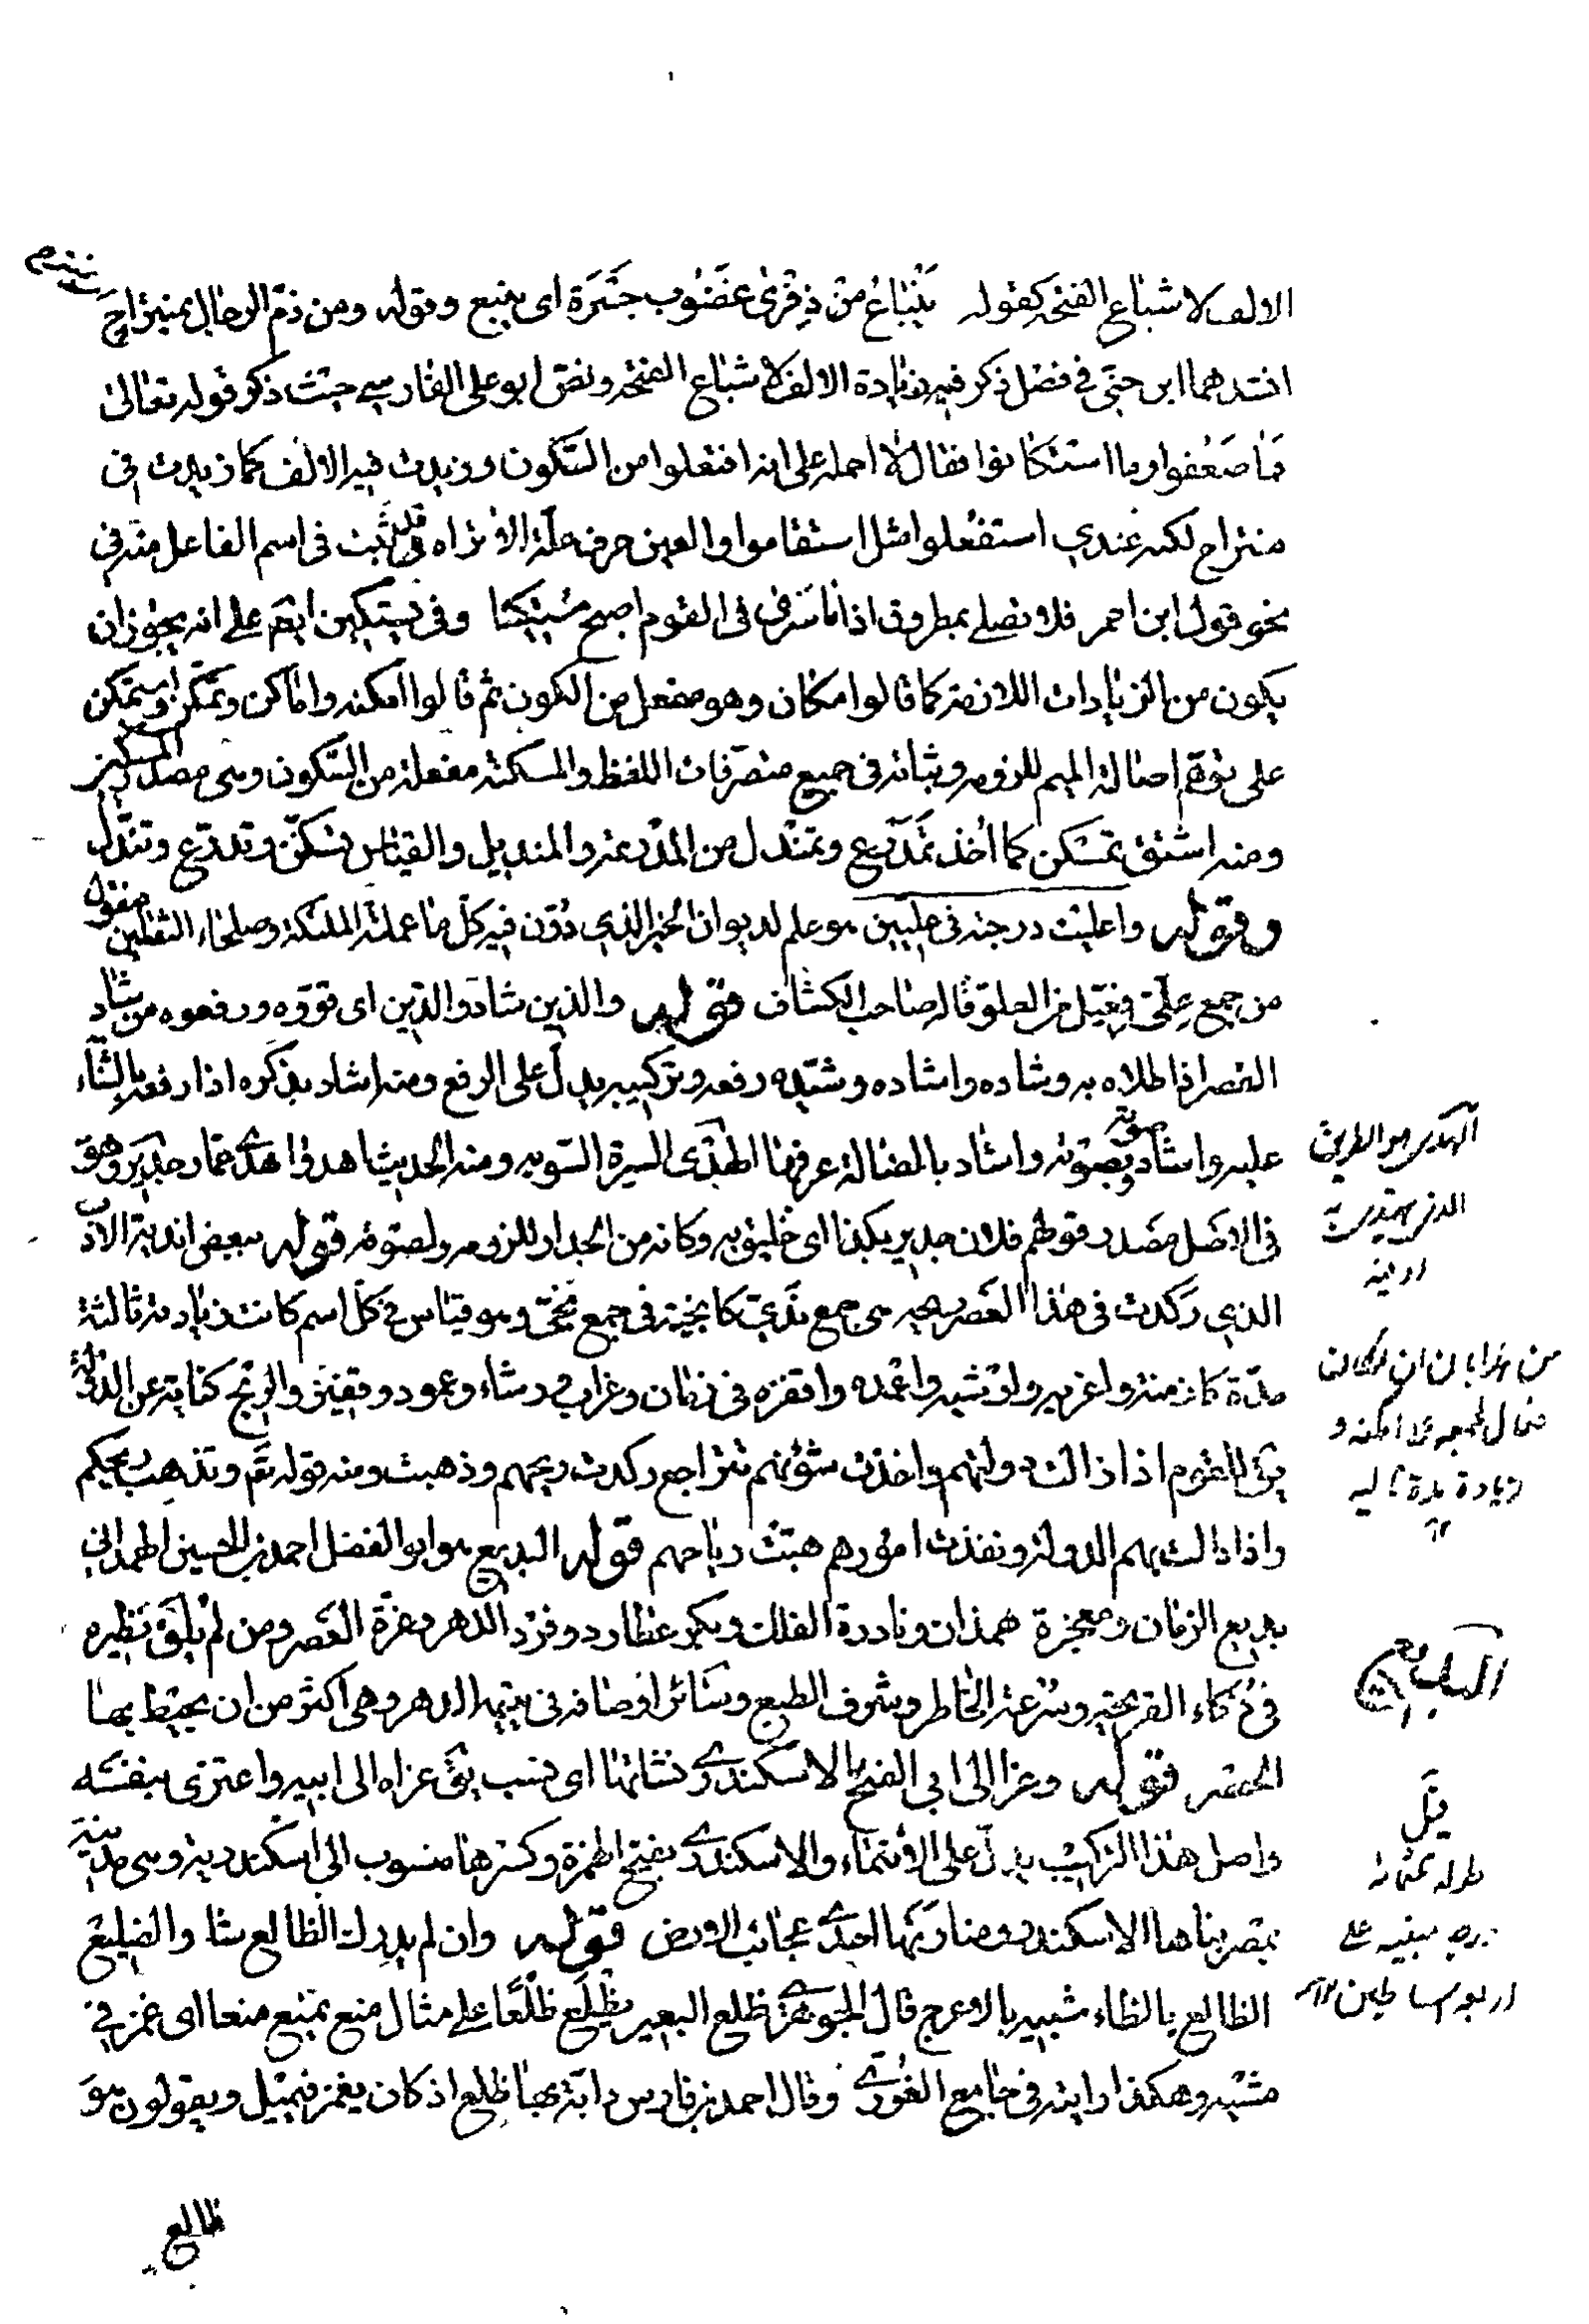 الالف لاشباع الفتحة كقوله يَنْبَاعُ من ذِفْرىٰ غَضُوب جَسْرَة اى ينبع وقوله ومن ذمّ الرجال بمنتزاح
انشدهما ابن جنّى فى فصل ذكر فيه زيادة الالف لاشباع الفتحة ونصّ ابو على الفارسى حيث ذكر قوله تعالى
فما ضعفوا وما استكانوا فقال لا احمله على انه افتعلوا من السّكون وزيدت فيه الالف كما زيدت فى
منتزاح لكنه عندى استفعلوا مثل استقاموا والعين حرف علّة الا تراه قد ثبت فى اسم الفاعل منه فى
نحو قول ابن احمر فلا تصلى بمطروق اذا ما سرى فى القوم اصبح مستكينا وفى يستكين ايضا على انه يجوز ان
يكون من الزيادات اللازمة كما قالوا مكان وهو مفعل من الكون ثم قالوا امكنه واماكن وتمكّن واستمكن
على توهّم اصالة الميم للزومه وثباته فى جميع متصرّفات اللفظ والمسكنة مفعلة من السّكون وهى مصدر المسكين
ومنه اشتق تمسكن كما اُخذ تَمَدْرع وتمندل من المدرعة والمنديل والقياس تسكّن وتدرّع وتندّل
وقوله واعليت درجته فى عليّين هو علم لديوان الخير الذى دُوّن فيه كل ما عملته الملئكة وصلحاء الثقلين منقول
من جمع عِلّىّ فعّيل من العلوّ قاله صاحب الكشاف قوله والذين شادوا الدّين اى قوّوه ورفعوه من شاد
القصر اذا طلاه به وشاده واشاده وشيّده رفعه وتركيبه يدلّ على الرفع ومنه اشاد بذكره اذا رفعه بالثناء
عليه واشاد صوته وبصوته واشاد بالضالة عرفها الهَدْى السيرة السّويه ومنه الحديث اهدوا هَدْىَ عمار جدير وهو
فى الاصل مصدر قولهم فلان جدير بكذا اى خليق به وكانه من الجدار للزومه ولصوقه قوله ببعض اندية الادب
الذى ركدت فى هذا العصر ريحه هى جمع نَدِىّ كانجية فى جمع نجىّ وهو قياس فى كلّ اسم كانت زيادته ثالثة
مدّة كازمنة واغربه وارشيه واعمده واقفزه فى زمان وغراب ورشاء وعمود وقفيز والريح كناية عن الدولة
يق للقوم اذا زالت دولتهم واخذت شؤنهم تتراجع ركدت ريحهم وذهبت ومنه قوله تع وتذهب ريحكم
واذا دالت بهم الدولة ونفذت امورهم هبّت رياحهم قوله البديع هو ابو الفضل احمد بن الحسين الهمدانى
بديع الزمان ومعجزة همذان ونادرة الفلك وبكر عطارد وفرد الدهر وغرّة العصر ومن لم يلق نظيره
فى ذكاء القريحة وسرعة الخاطر وشرف الطبع وسائر اوصافه فى يتيمة الدهر وهى اكثر من ان يحيط بها
الحصر قوله وعزا الى ابى الفتح الاسكندرى نشاتها اى نسب يق عزاه الى ابيه واعتزى بنفسه
واصل هذا التركيب يدلّ على الانتماء والاسكندرى بفتح الهمزة وكسرها منسوب الى اسكندرية وهى مدينة
بمصر بناها الاسكندر ومنارتها احدى عجائب الارض قوله وان لم يدرك الظالع شاو الضليع
الظالع بالظاء شبيه بالاعرج قال الجوهرى ظلع البعير يظلَع ظَلْعًا على مثال منع يمنع منعا اى غمز فى
مشيه وهكذا رايته فى جامع الغورى وقال احمد بن فارس دابّة بها ظلع اذ كان يغمز فيميل ويقولون هو
ظالع
الهدى هو الطريق
زيادة مدة ثالثة
البديع
قيل
طوله ثلثمائة